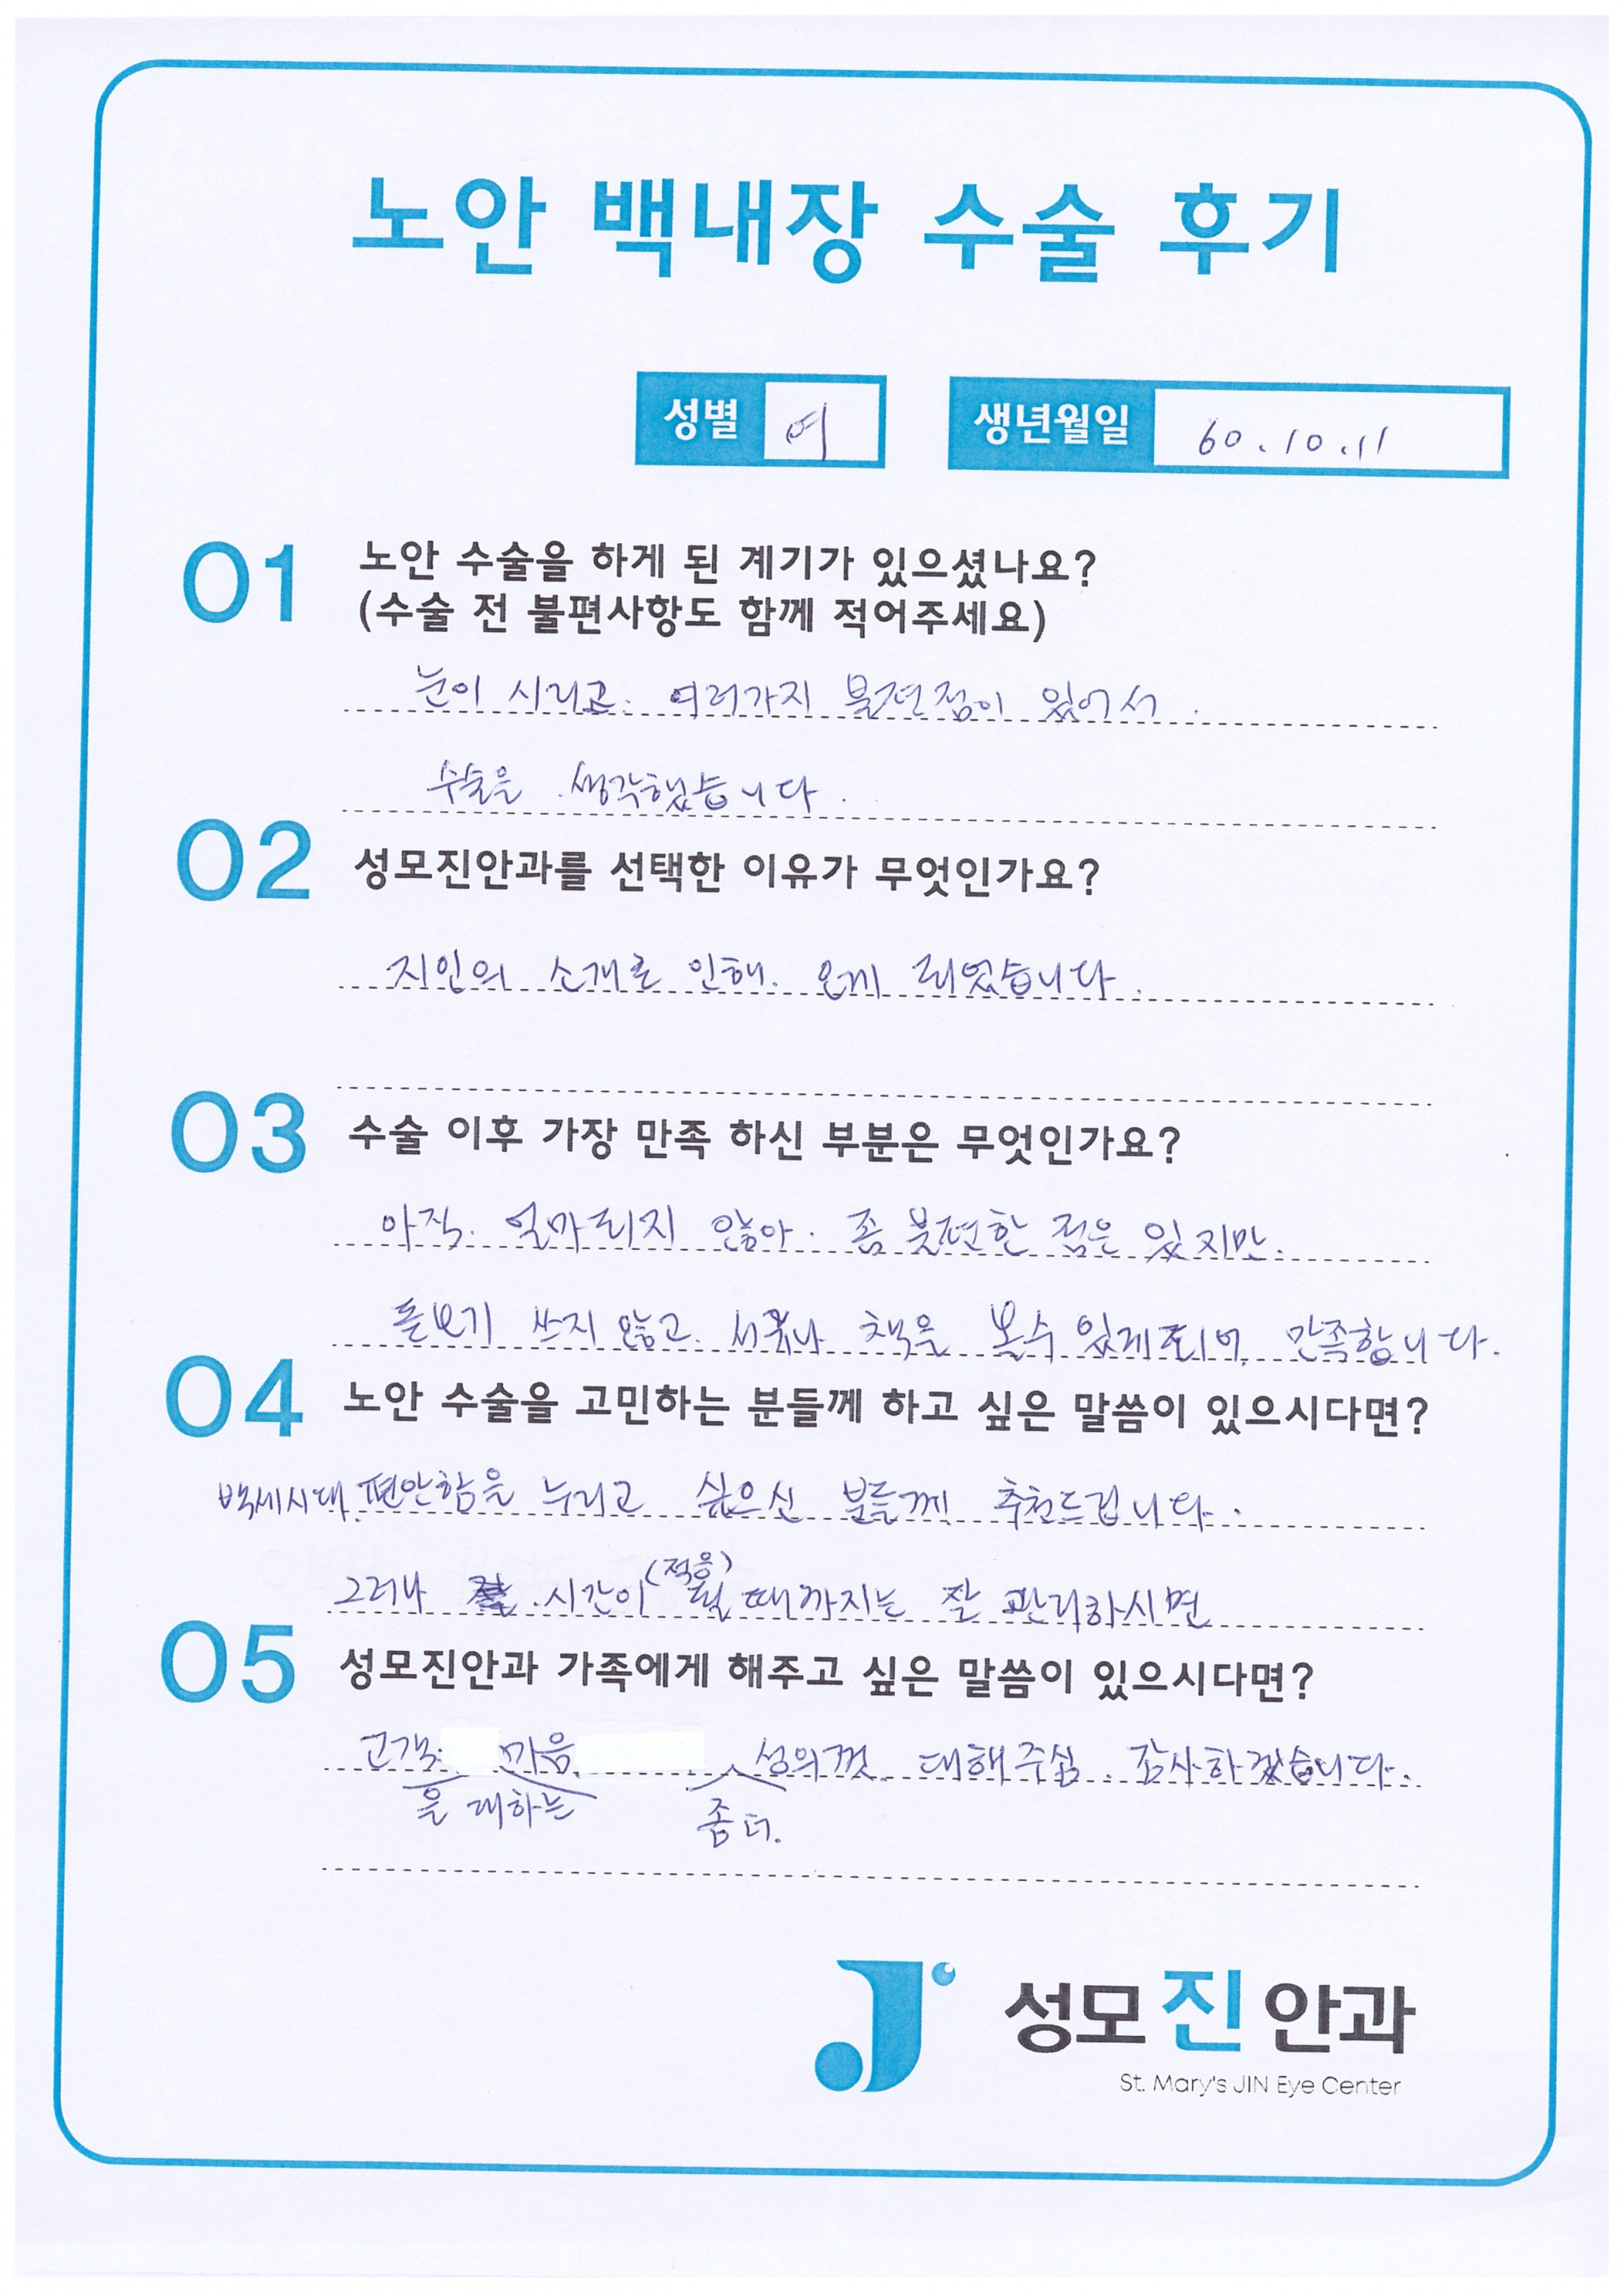 노안 백내장 수술 후기
성별 여 생년월일 60.10.11
01 노안 수술을 하게 된 계기가 있으셨나요?
(수술 전 불편사항도 함께 적어주세요)
눈이 시리고. 여러가지 불편점이 있어서.
수술을 생각했습니다.
02 성모진안과를 선택한 이유가 무엇인가요?
지인의 소개로 인해. 오게 되었습니다.
03 수술 이후 가장 만족 하신 부분은 무엇인가요?
아직. 얼마되지 않아. 좀 불편한 점은 있지만.
돋보기 쓰지 않고. 책을 볼수 있게되어, 만족합니다.
04 노안 수술을 고민하는 분들께 하고 싶은 말씀이 있으시다면?
백세시대. 편안함을 누리고 싶으신 분들께 추천드립니다.
(적응)
그러나 시간이 될 때까지는 잘 관리하시면
05 성모진안과 가족에게 해주고 싶은 말씀이 있으시다면?
고객 마음. 성의껏 대해주심. 감사하겠습니다.
을 대하는 좀 더.
성모진안과
St. Mary's JIN Eye Center